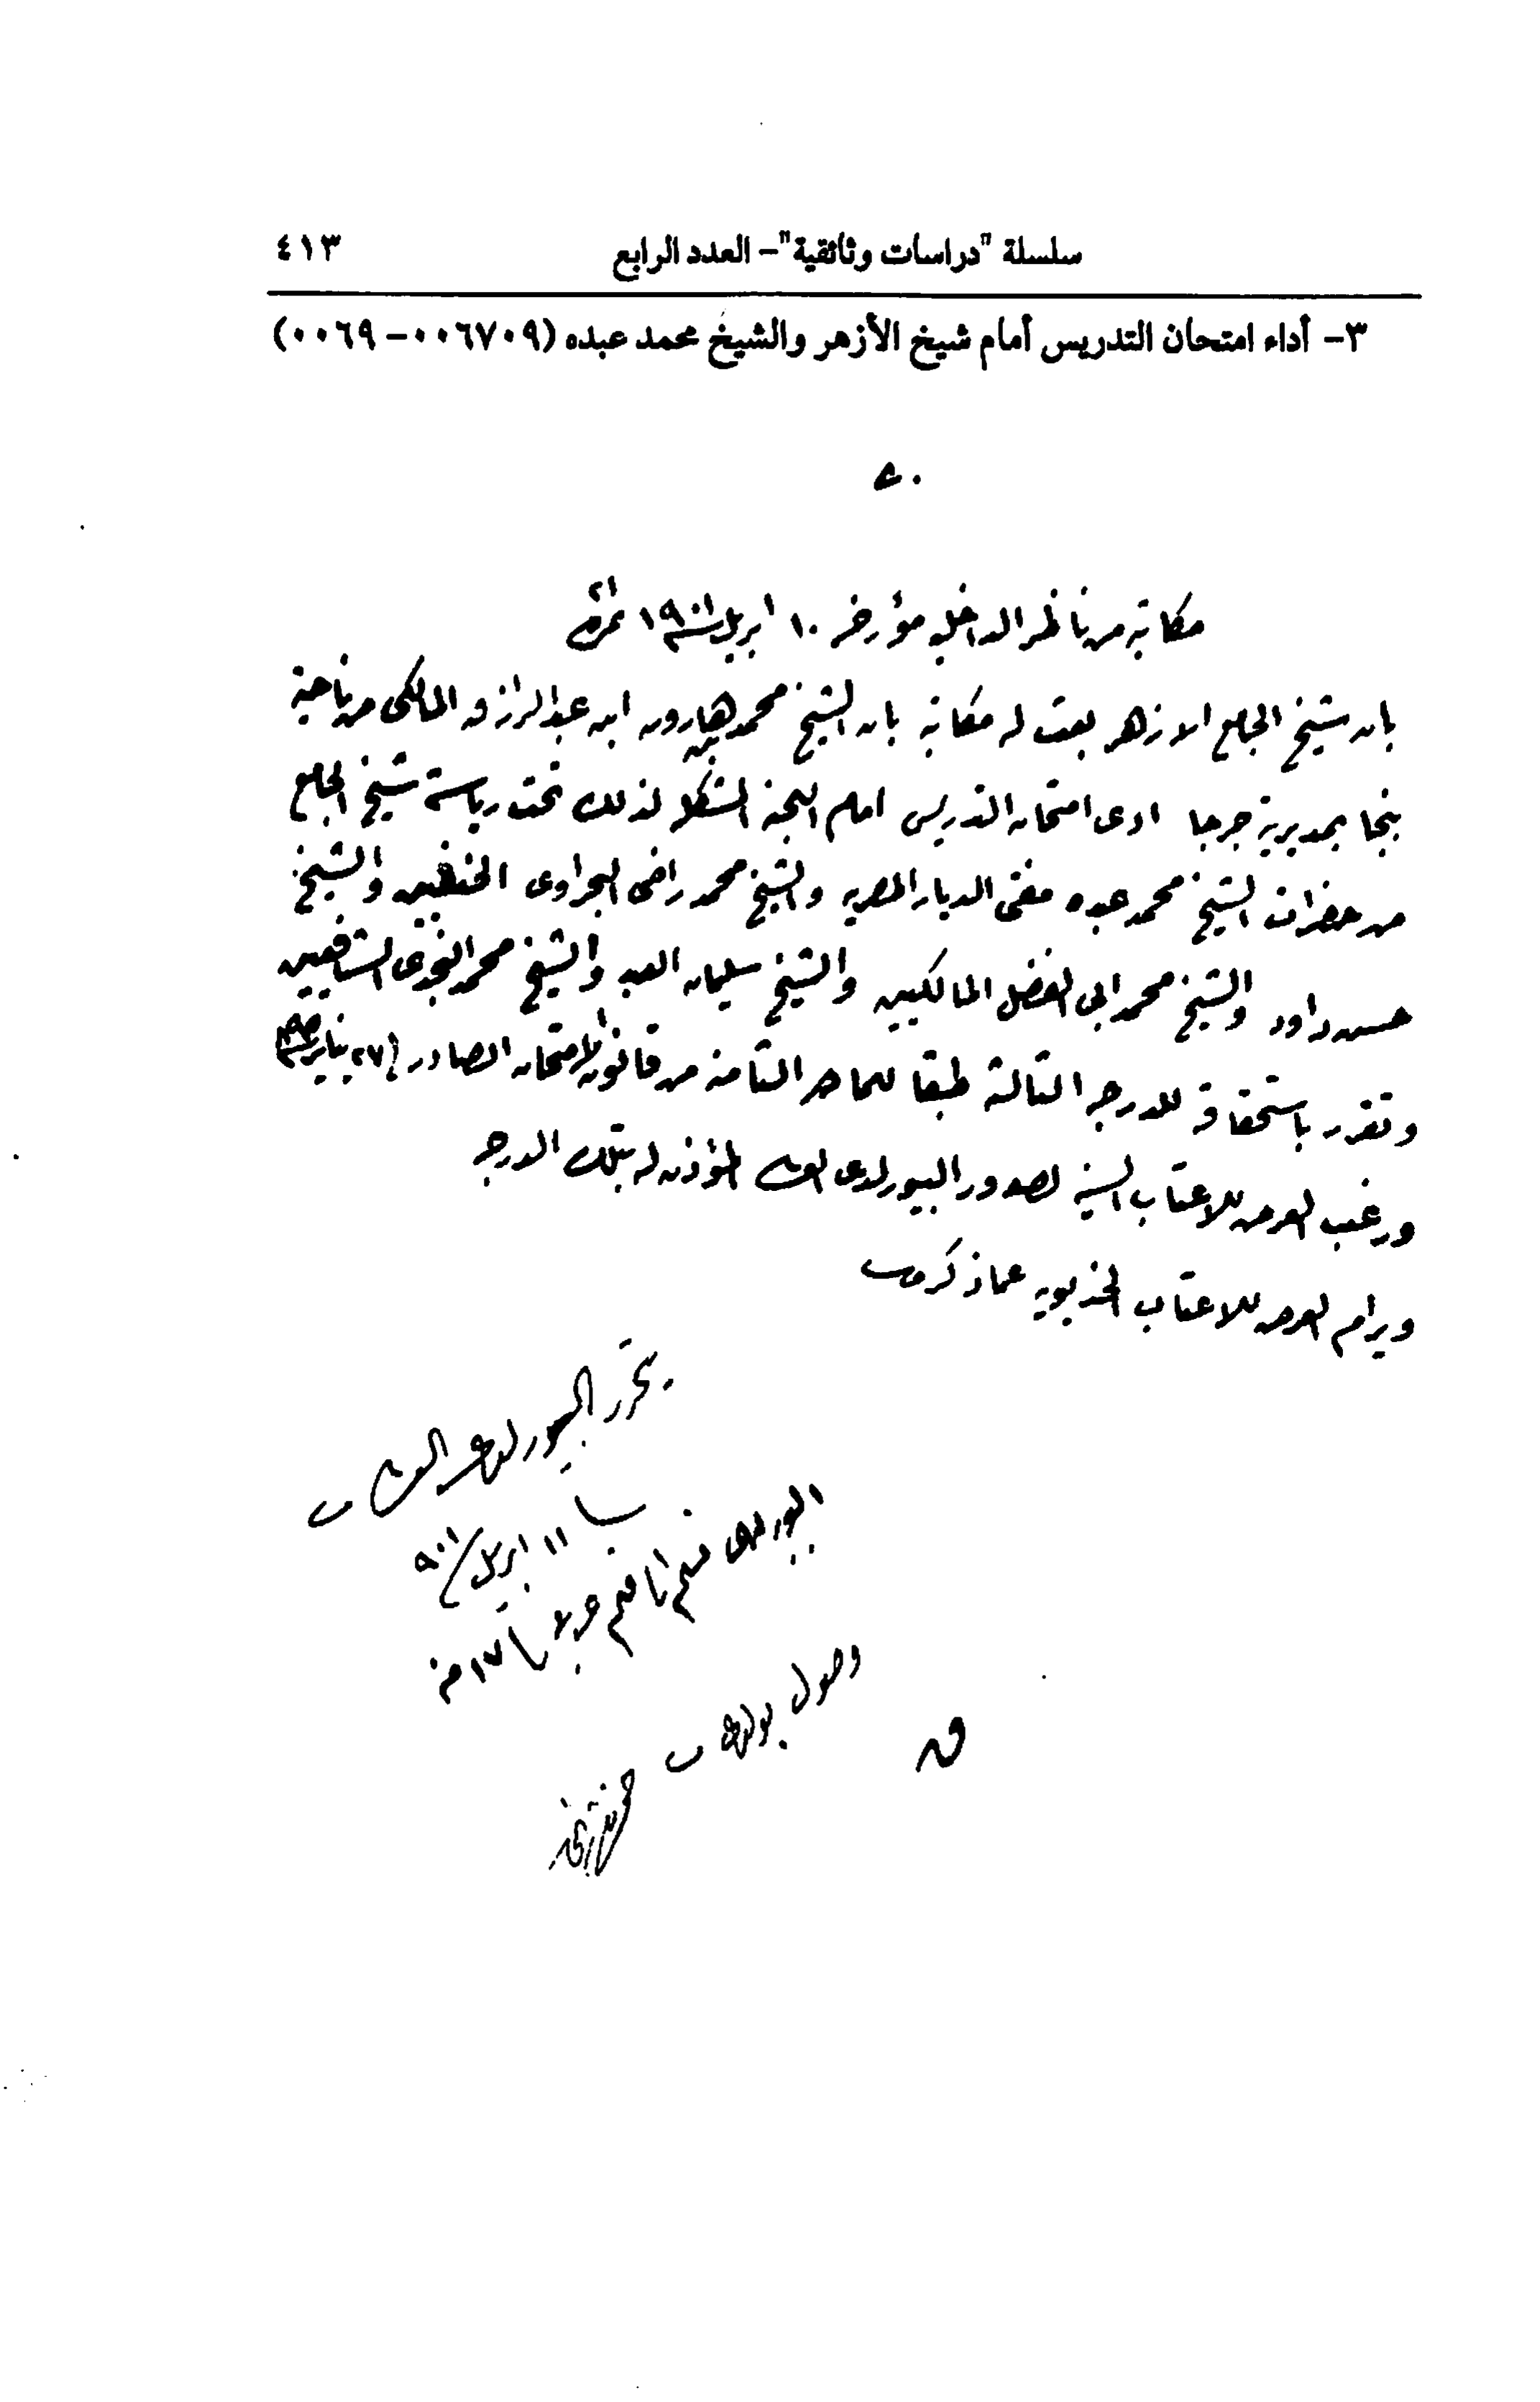 سلسلة "دراسات وثائقية" – العدد الرابع ٤١٣
٣– أداء امتحان التدريس أمام شيخ الأزهر والشيخ محمد عبده (٠٠٦٩ – ٠٠٦٧٠٩)
مكاتبة من ناظر الداخلية مؤرخه ١٠ ابريل سنة ١٩٠١ نمرة
بان شيخ الجامع الازهر بعث له مكاتبة بان الشيخ محمد هارون ابن عبد الرازق المالكى من ناحية
بنجا بمديرية جرجا ادى امتحان التدريس امام اللجنة المشكلة لذلك تحت رياسة شيخ الجامع
من حضرات الشيخ محمد عبده مفتى الديار المصريه والشيخ محمد راضى البحراوى الحنفيين والشيخ
حسن داود والشيخ محمد ابى الفضل المالكيين والشيخ سليمان العبد والشيخ محمد النجدى الشافعيين
وتقرر باستحقاقه للدرجه الثالثة طبقا للمادة الثامنه من قانون الامتحان الصادر في ٢٧ يناير
ورغب العرض للاعتاب السنية لصدور البيورلدى العالى المؤذن له بتلك الدرجه
ويرام العرض للاعتاب الخديويه عما ذكر
يتحرر البيورلدى العالى
١١ ابريل
البيورلدى
وصول